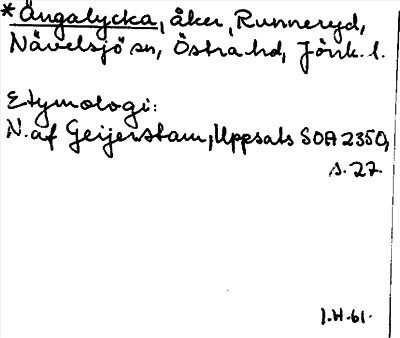 * Ängalycka, åker, Runneryd,
Nävelsjö sn, Östra hd, Jönk. l.
Etymologi:
N. af Geijerstam, Uppsats SOA 2350,
s. 27.
I.H. 61.